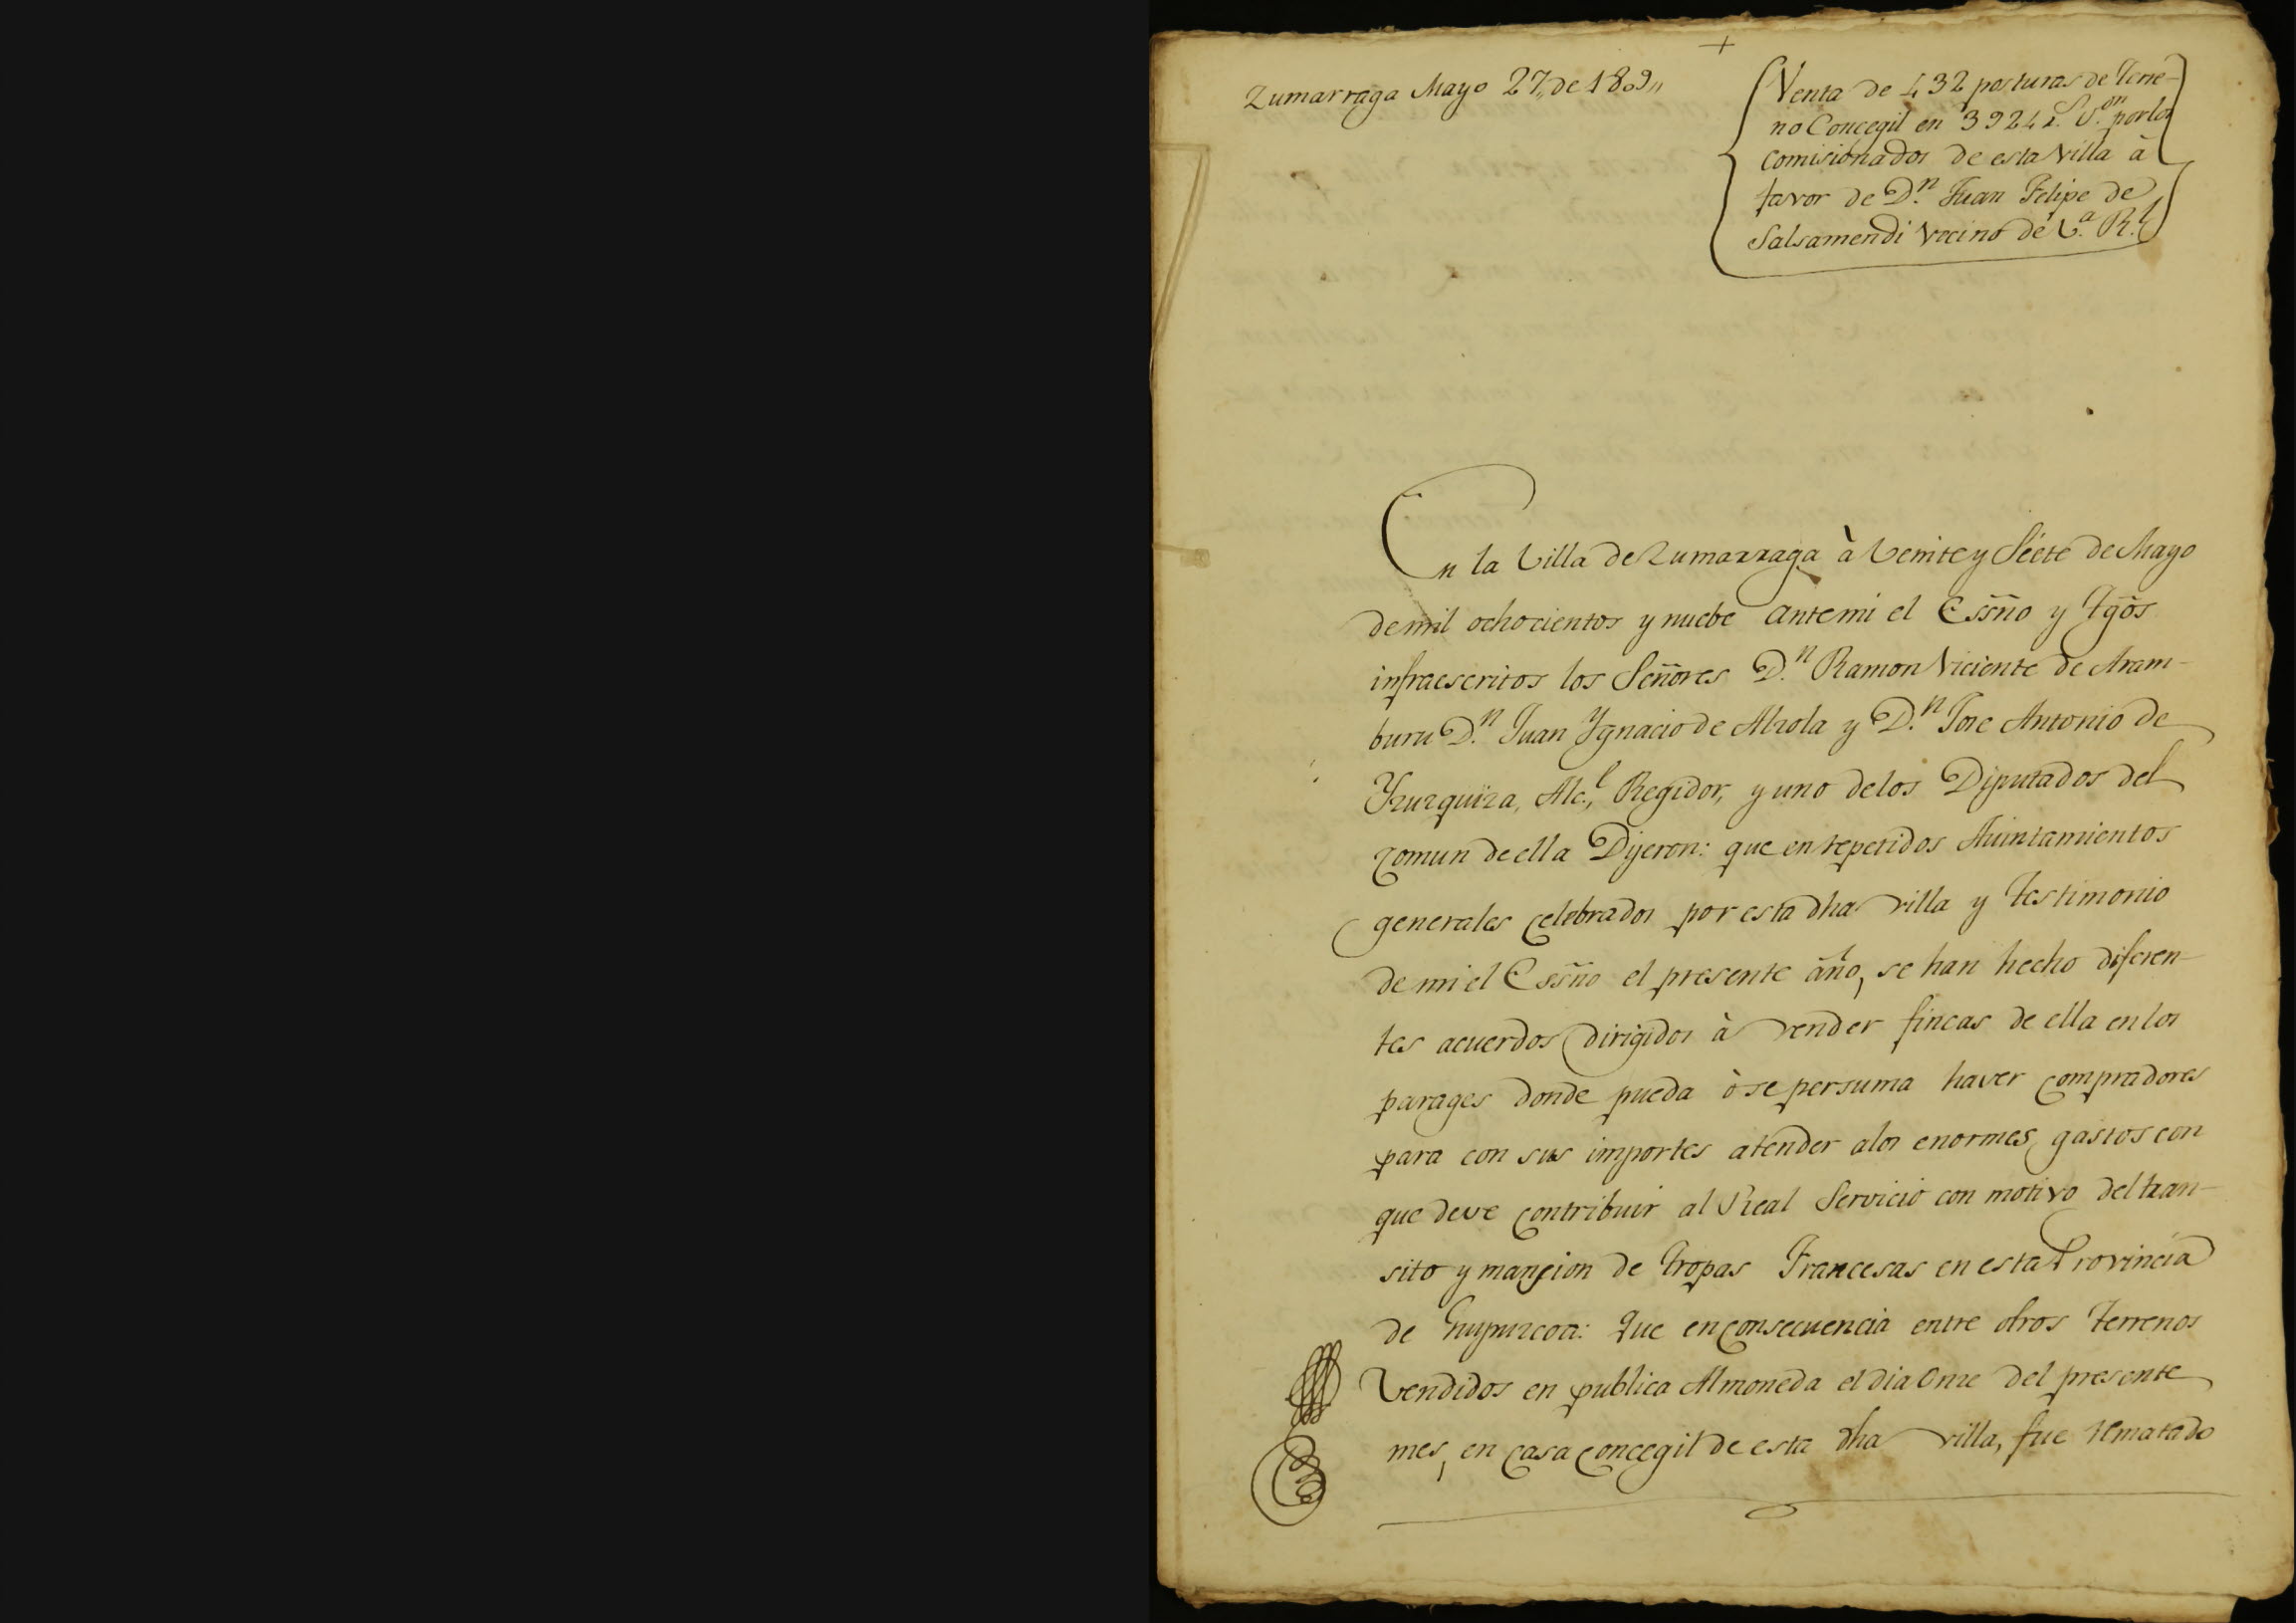 +
Zumarraga Mayo 27,, de 1809,,
Venta de 432 posturas de Terre-
no Concegil en 3924 r.s v.on por los
comisionados de esta Villa à
favor de D.n Juan Felipe de
Salsamendi vecino de V.a R.l
En la Villa de Zumarraga à Veinte y Siete de Mayo
de mil ochocientos y nuebe ante mi el Essño y Tgõs
infraescritos los Señores D.n Ramon Viciente de Aram-
buru D.n Juan Ygnacio de Alzola y D.n Jose Antonio de
Yzuzquiza, Alc.l, Regidor, y uno de los Diputados del
comun de ella Dijeron: que en repetidos Auintamientos
generales celebrados por esta dha villa y testimonio
de mi el Essño el presente año, se han hecho diferen-
tes acuerdos dirigidos à vender fincas de ella en los
parages donde pueda ò se persuma haver compradores
para con sus importes atender a los enormes gastos con
que deve contribuir al Real Servicio con motivo del tran-
sito y mansion de tropas Francesas en esta Provincia
de Guipuzcoa: Que en consecuencia entre otros terrenos
Vendidos en publica Almoneda el dia Onze del presente
mes, en casa concegil de esta dha villa, fue rematado